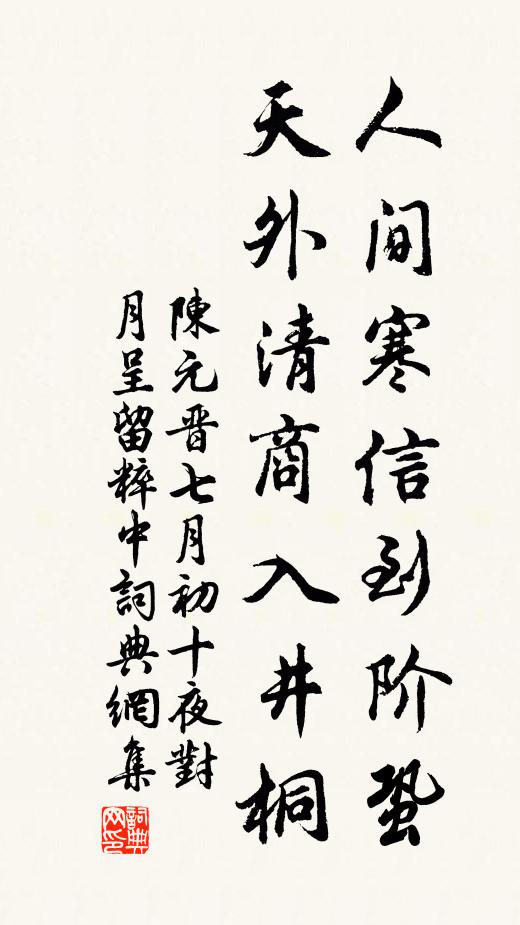 人间寒信到阶蛩
天外清商入井桐
陳元晋七月初十夜對
月呈留粹中詞典網集
詞典网印